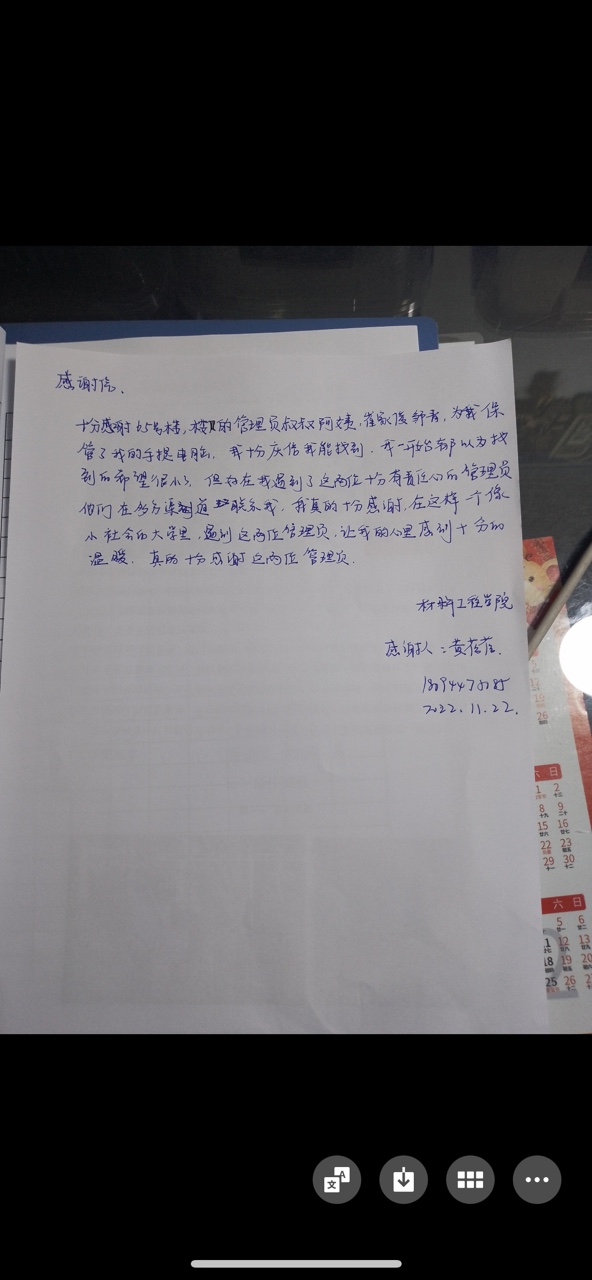 感谢信、
十分感谢65号楼,楼的管理员叔叔阿姨,崔家俊郭青,为我保
管了我的手提电脑,我十分庆信我能找到,我一开始都以为找
到的希望很小,但好在我遇到了这两位十分有责任心的管理员
他们在多方渠道联系我,我真的十分感谢,在这样一个像
小社会的大学里,遇到这两位管理员,让我的心里感到十分的
温暖,真的十分感谢这两位管理员.
材料工程学院
感谢人:黄
2022.11.22.
26
六 日
1 2
8 9
15 16
22 23
29 30
六 日
5 6
11 12 13
18 19 20
25 26